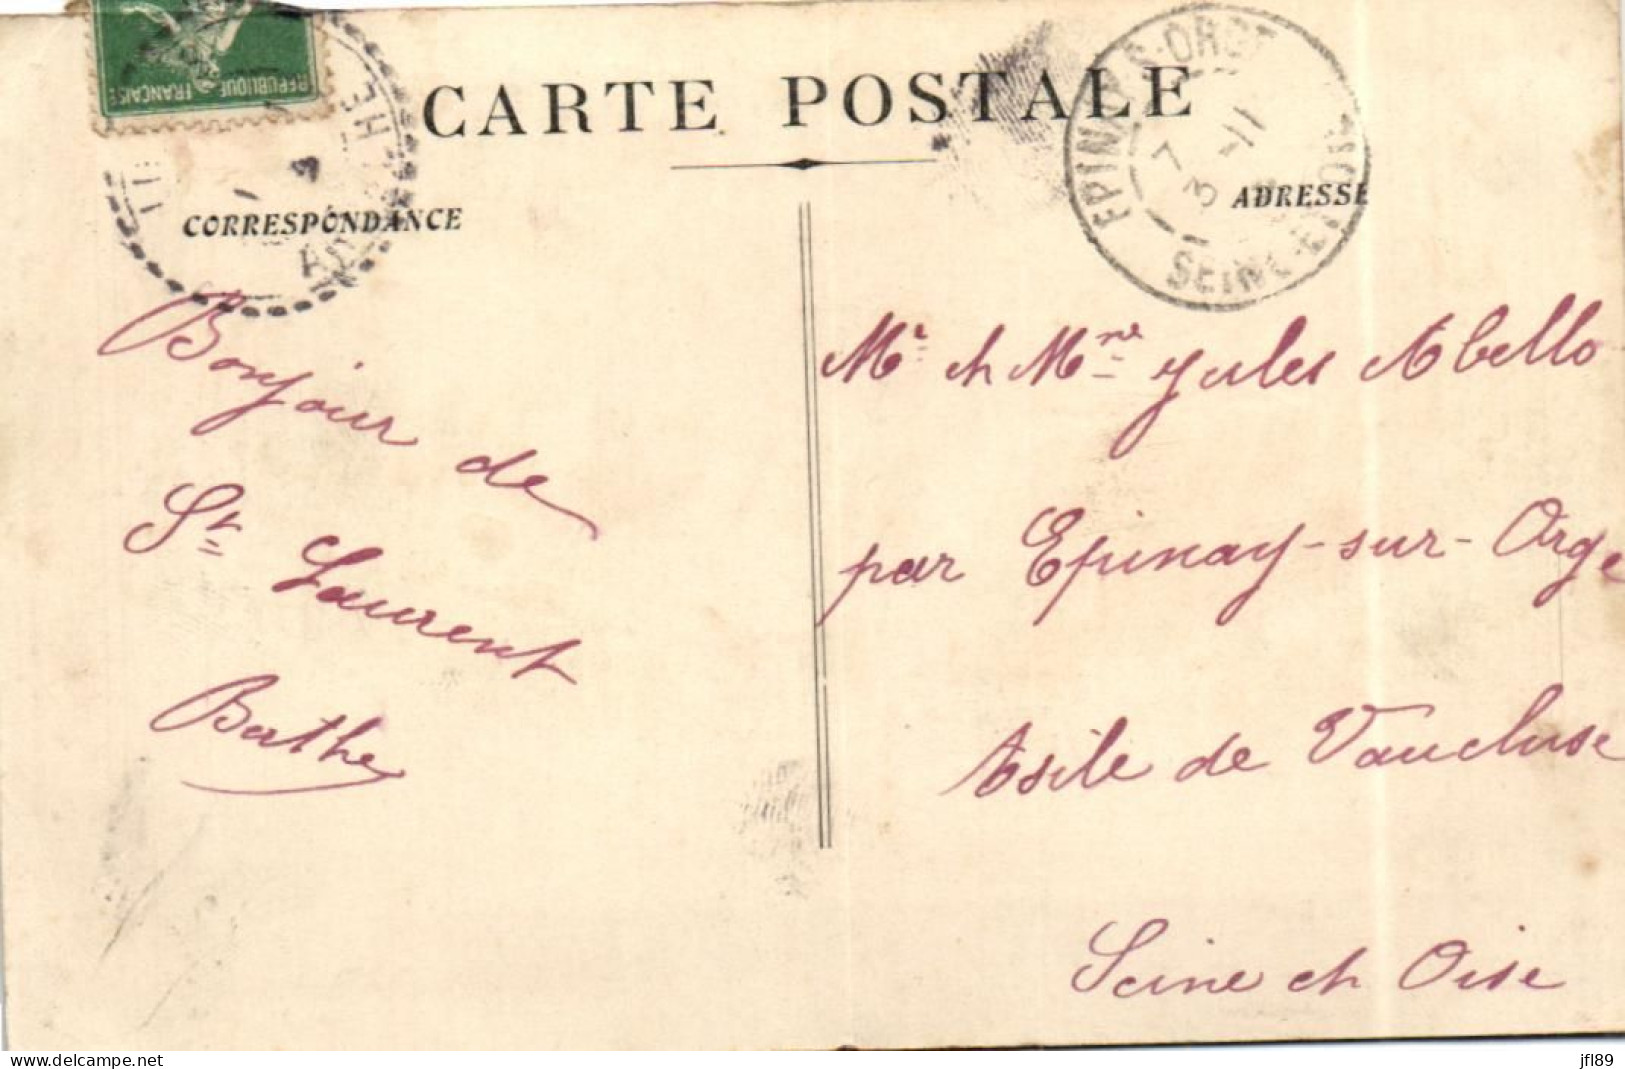 REPUBLIQUE FRANÇAISE
CARTE POSTALE
EPINAY-S-ORGE
7
3 -11
SEINE-ET-OISE
CORRESPONDANCE
ADRESSE
Bonjour de
St Laurent
Berthe
Mr et Mme Jules Abello
par Epinay-sur-Orge
Asile de Vaucluse
Seine et Oise
www.delcampe.net
jfl89